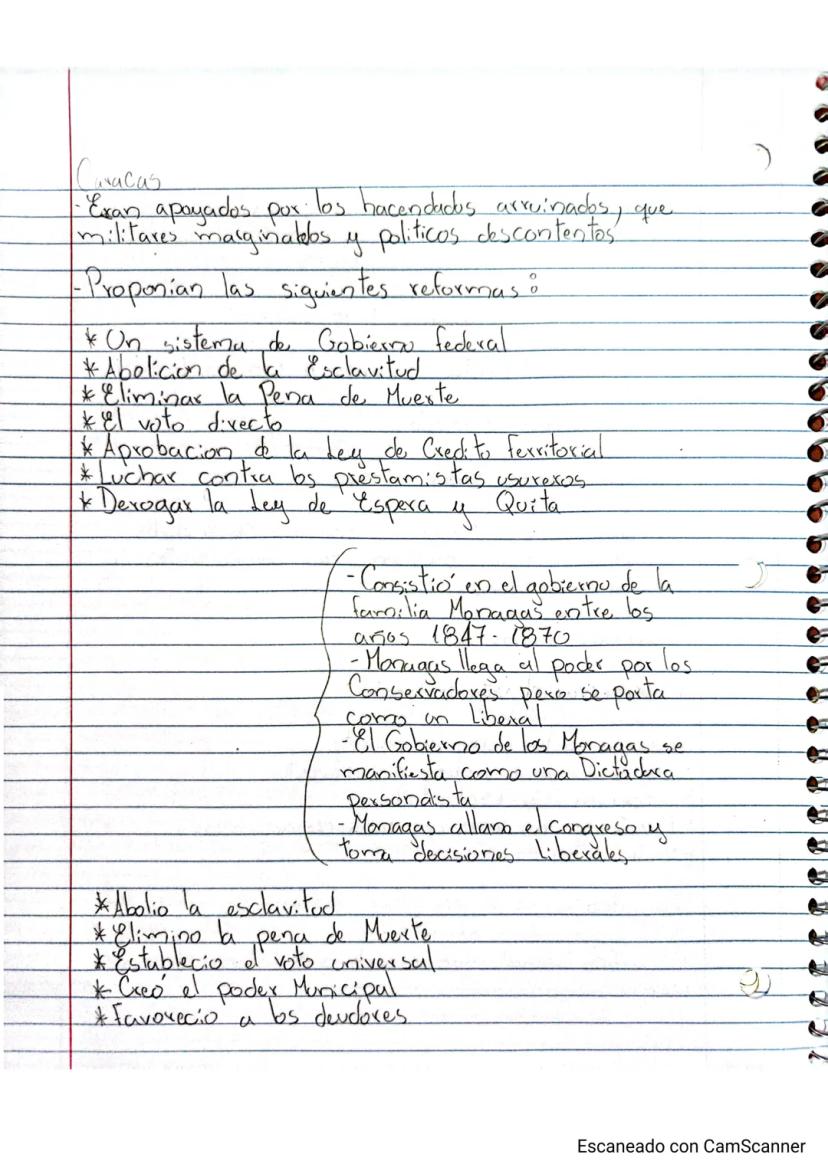 Caracas
- Eran apoyados por los hacendados arruinados, que
militares marginados y politicos descontentos
- Proponian las siguientes reformas:
* Un sistema de Gobierno federal
* Abolicion de la Esclavitud
* Eliminar la Pena de Muerte
* El voto directo
* Aprobacion de la Ley de Credito Territorial
* Luchar contra los prestamistas usureros
* Derogar la Ley de Espera y Quita
- Consistió en el gobierno de la
familia Monagas entre los
años 1847 - 1870
- Monagas llega al poder por los
Conservadores pero se porta
como un Liberal
- El Gobierno de los Monagas se
manifiesta como una Dictadura
personalista
- Monagas allano el congreso y
toma decisiones Liberales
* Abolio la esclavitud
* Elimino la pena de Muerte
* Establecio el voto universal
* Creó el poder Municipal
* Favorecio a los deudores
Escaneado con CamScanner